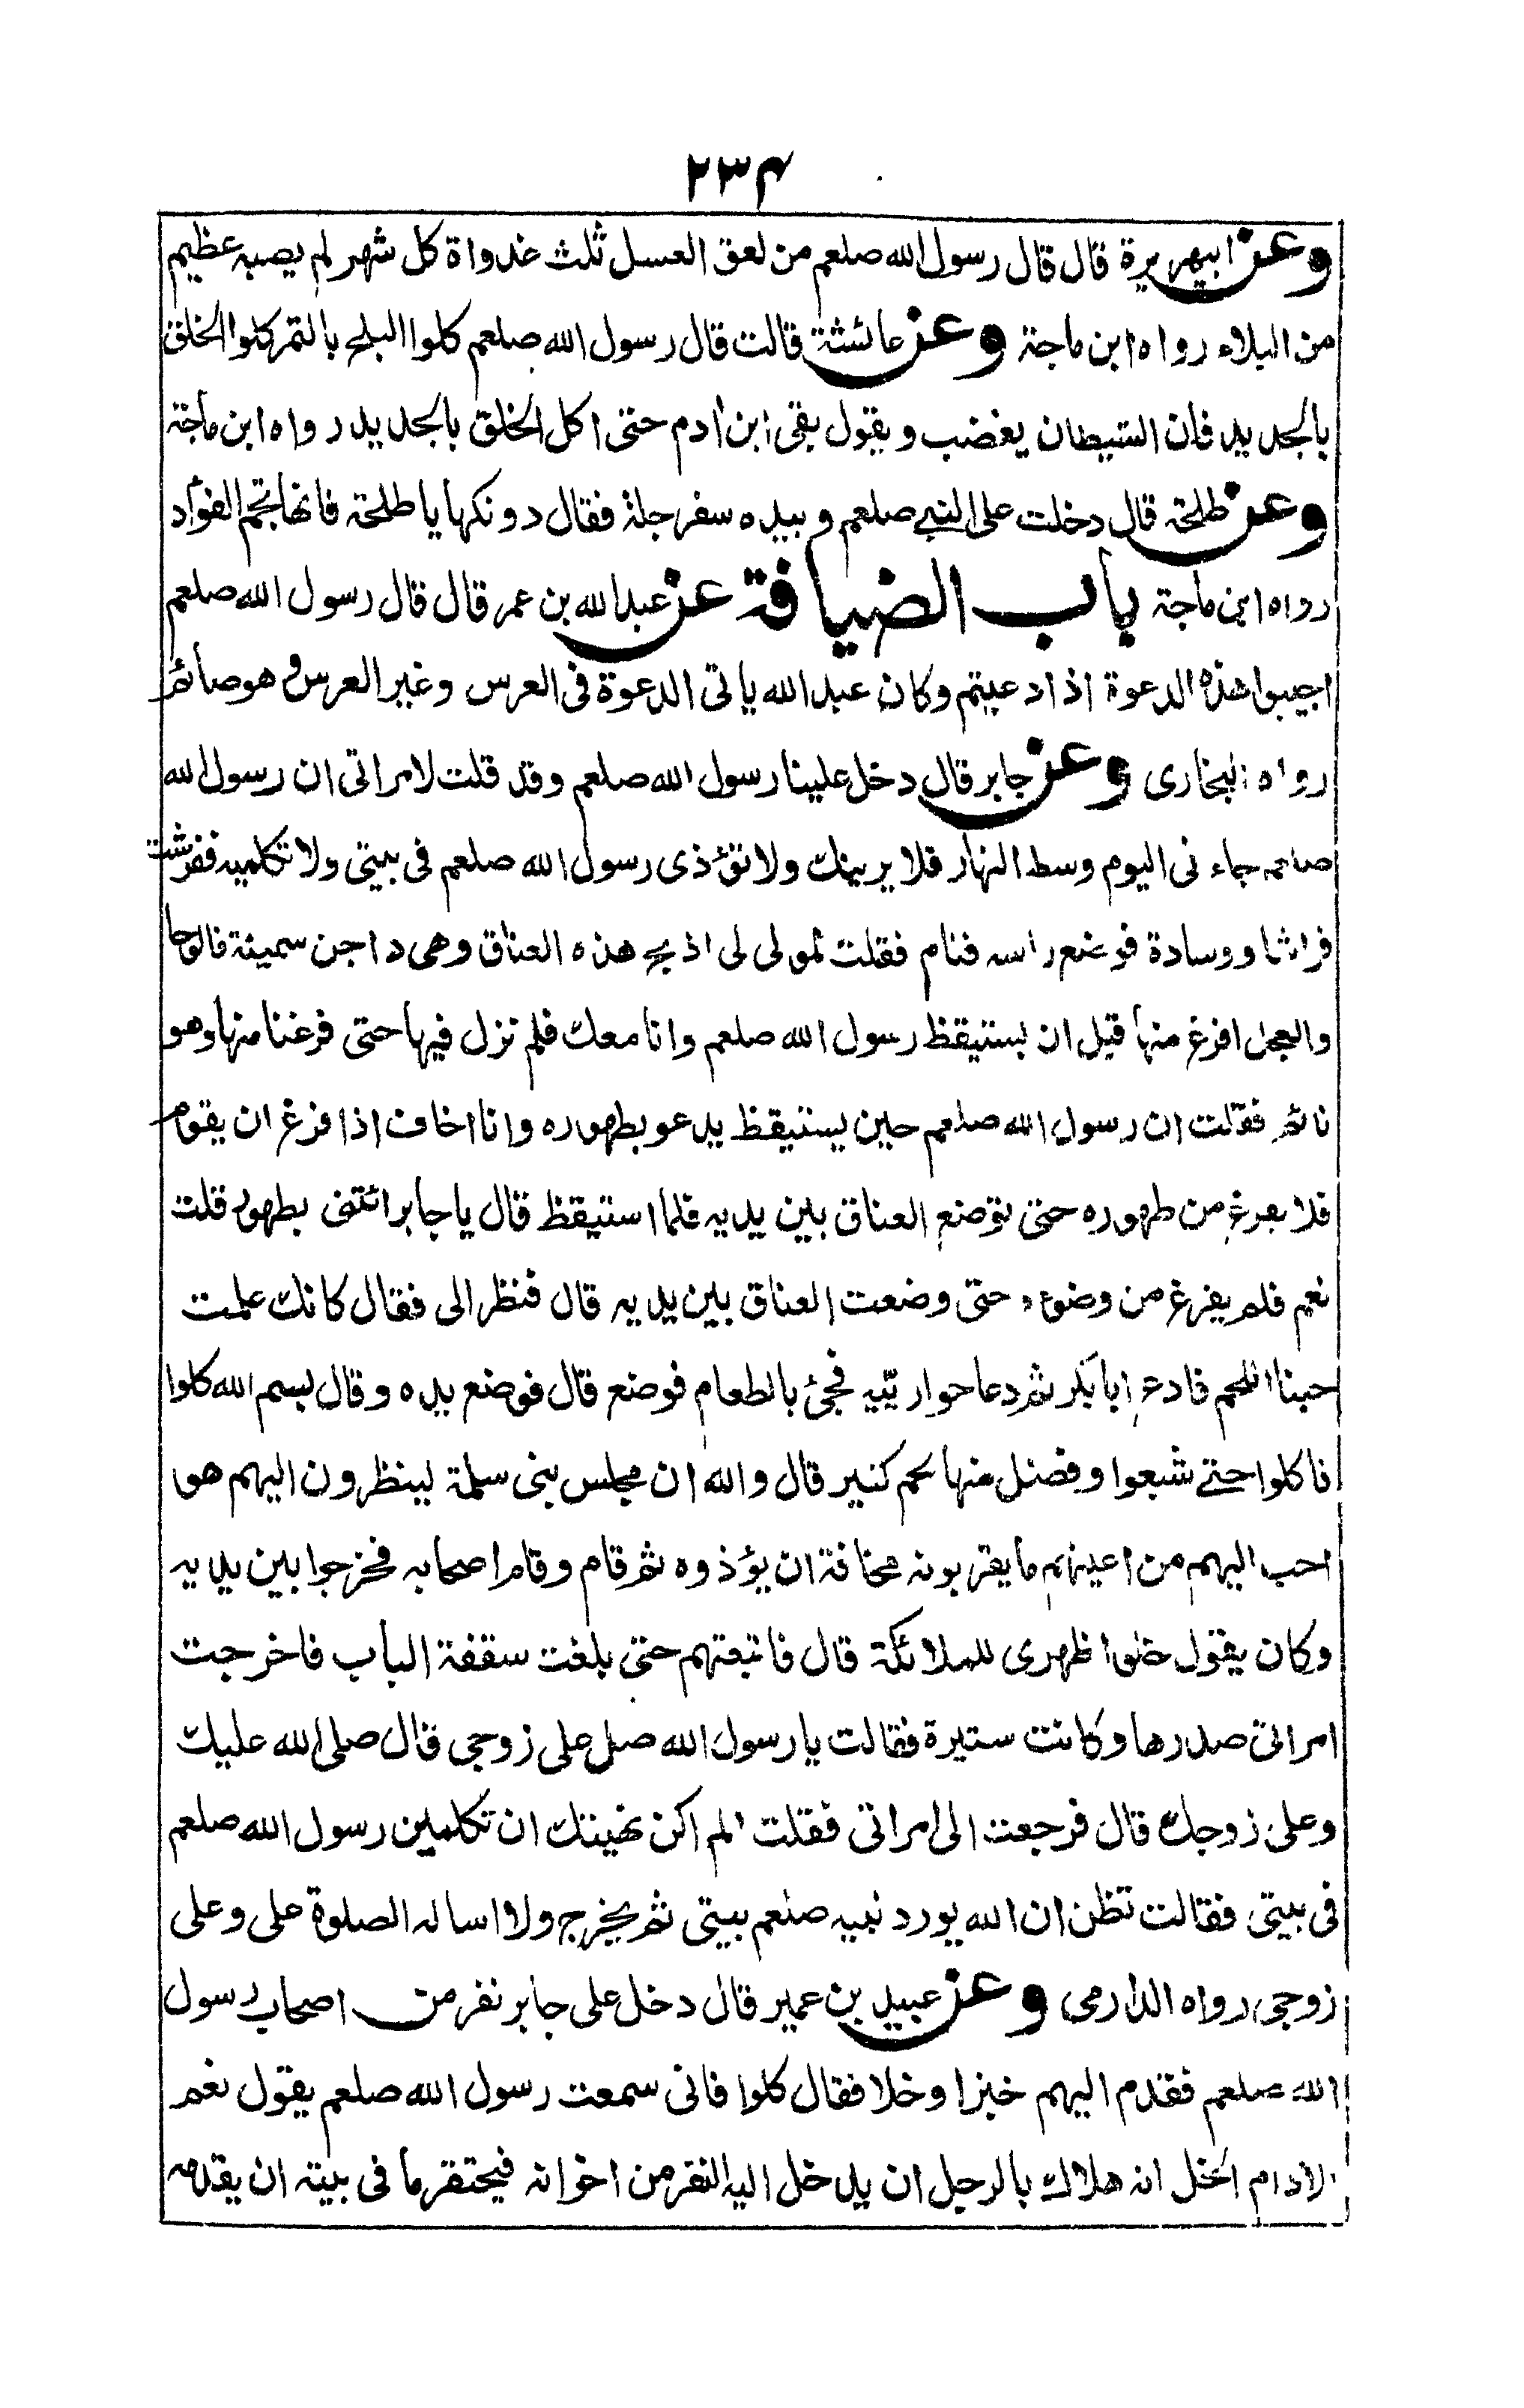 ٢٣۴
وعن ابيهريرة قال قال رسول الله صلعم من لعق العسل ثلث غدواة كل شهر لم يصبه عظيم
من البلاء رواه ابن ماجة وعن عائشة قالت قال رسول الله صلعم كلوا البلح بالتمر كلوا الخلق
بالجديد فان الشيطان يغضب ويقول بقى ابن ادم حتى اكل الخلق بالجديد رواه ابن ماجة
وعن طلحة قال دخلت على النبي صلعم وبيده سفرجلة فقال دونكها يا طلحة فانها تجم الفؤاد
رواه ابن ماجة باب الضيافة عن عبد الله بن عمر قال قال رسول الله صلعم
اجيبوا هذه الدعوة اذا دعيتم وكان عبد الله ياتى الدعوة فى العرس وغير العرس وهو صائم
رواه البخارى وعن جابر قال دخل علينا رسول الله صلعم وقد قلت لامراتى ان رسول الله
صلعم جاءنى اليوم وسط النهار فلا يرينك ولا تؤذى رسول الله صلعم فى بيتى ولا تكلميه ففرشت
فراشا ووسادة فوضع راسه فنام فقلت لمولى لى اذبح هذه العناق وهى داجن سمينة فالوحا
والعجل افرغ منها قبل ان يستيقظ رسول الله صلعم وانا معك فلم نزل فيها حتى فرغنا منها وهو
نائم فقلت ان رسول الله صلعم حين يستيقظ يدعو بطهوره وانا اخاف اذا فرغ ان يقوم
فلا يفرغ من طهوره حتى توضع العناق بين يديه فلما استيقظ قال يا جابر ائتنى بطهور قلت
نعم فلم يفرغ من وضوءه حتى وضعت العناق بين يديه قال فنظر الى فقال كانك علمت
حبنا اللحم فادع ابا بكر ثم دعا حواريّيه فجئ بالطعام فوضع قال فوضع يده وقال بسم الله كلوا
فاكلوا حتے شبعوا وفضل منها لحم كثير قال والله ان مجلس بنى سلمة لينظرون اليهم هو
احب اليهم من اعينهم ما يقربونه مخافة ان يؤذوه ثم قام وقام اصحابه فخرجوا بين يديه
وكان يقول خلوا ظهرى للملائكة قال فاتبعتهم حتى بلغت سقفة الباب فاخرجت
امراتى صدرها وكانت ستيرة فقالت يا رسول الله صل على زوجى قال صلى الله عليك
وعلى زوجك قال فرجعت الى امراتى فقلت الم اكن نهيتك ان تكلمين رسول الله صلعم
فى بيتى فقالت تظن ان الله يورد نبيه صلعم بيتى ثم يخرج ولا اساله الصلوة على وعلى
زوجى رواه الدارمى وعن عبيد بن عمير قال دخل على جابر نفر من اصحاب رسول
الله صلعم فقدم اليهم خبزا وخلا فقال كلوا فانى سمعت رسول الله صلعم يقول نعم
الادام الخل انه هلاك بالرجل ان يدخل اليه النفر من اخوانه فيحتقر ما فى بيته ان يقدمه